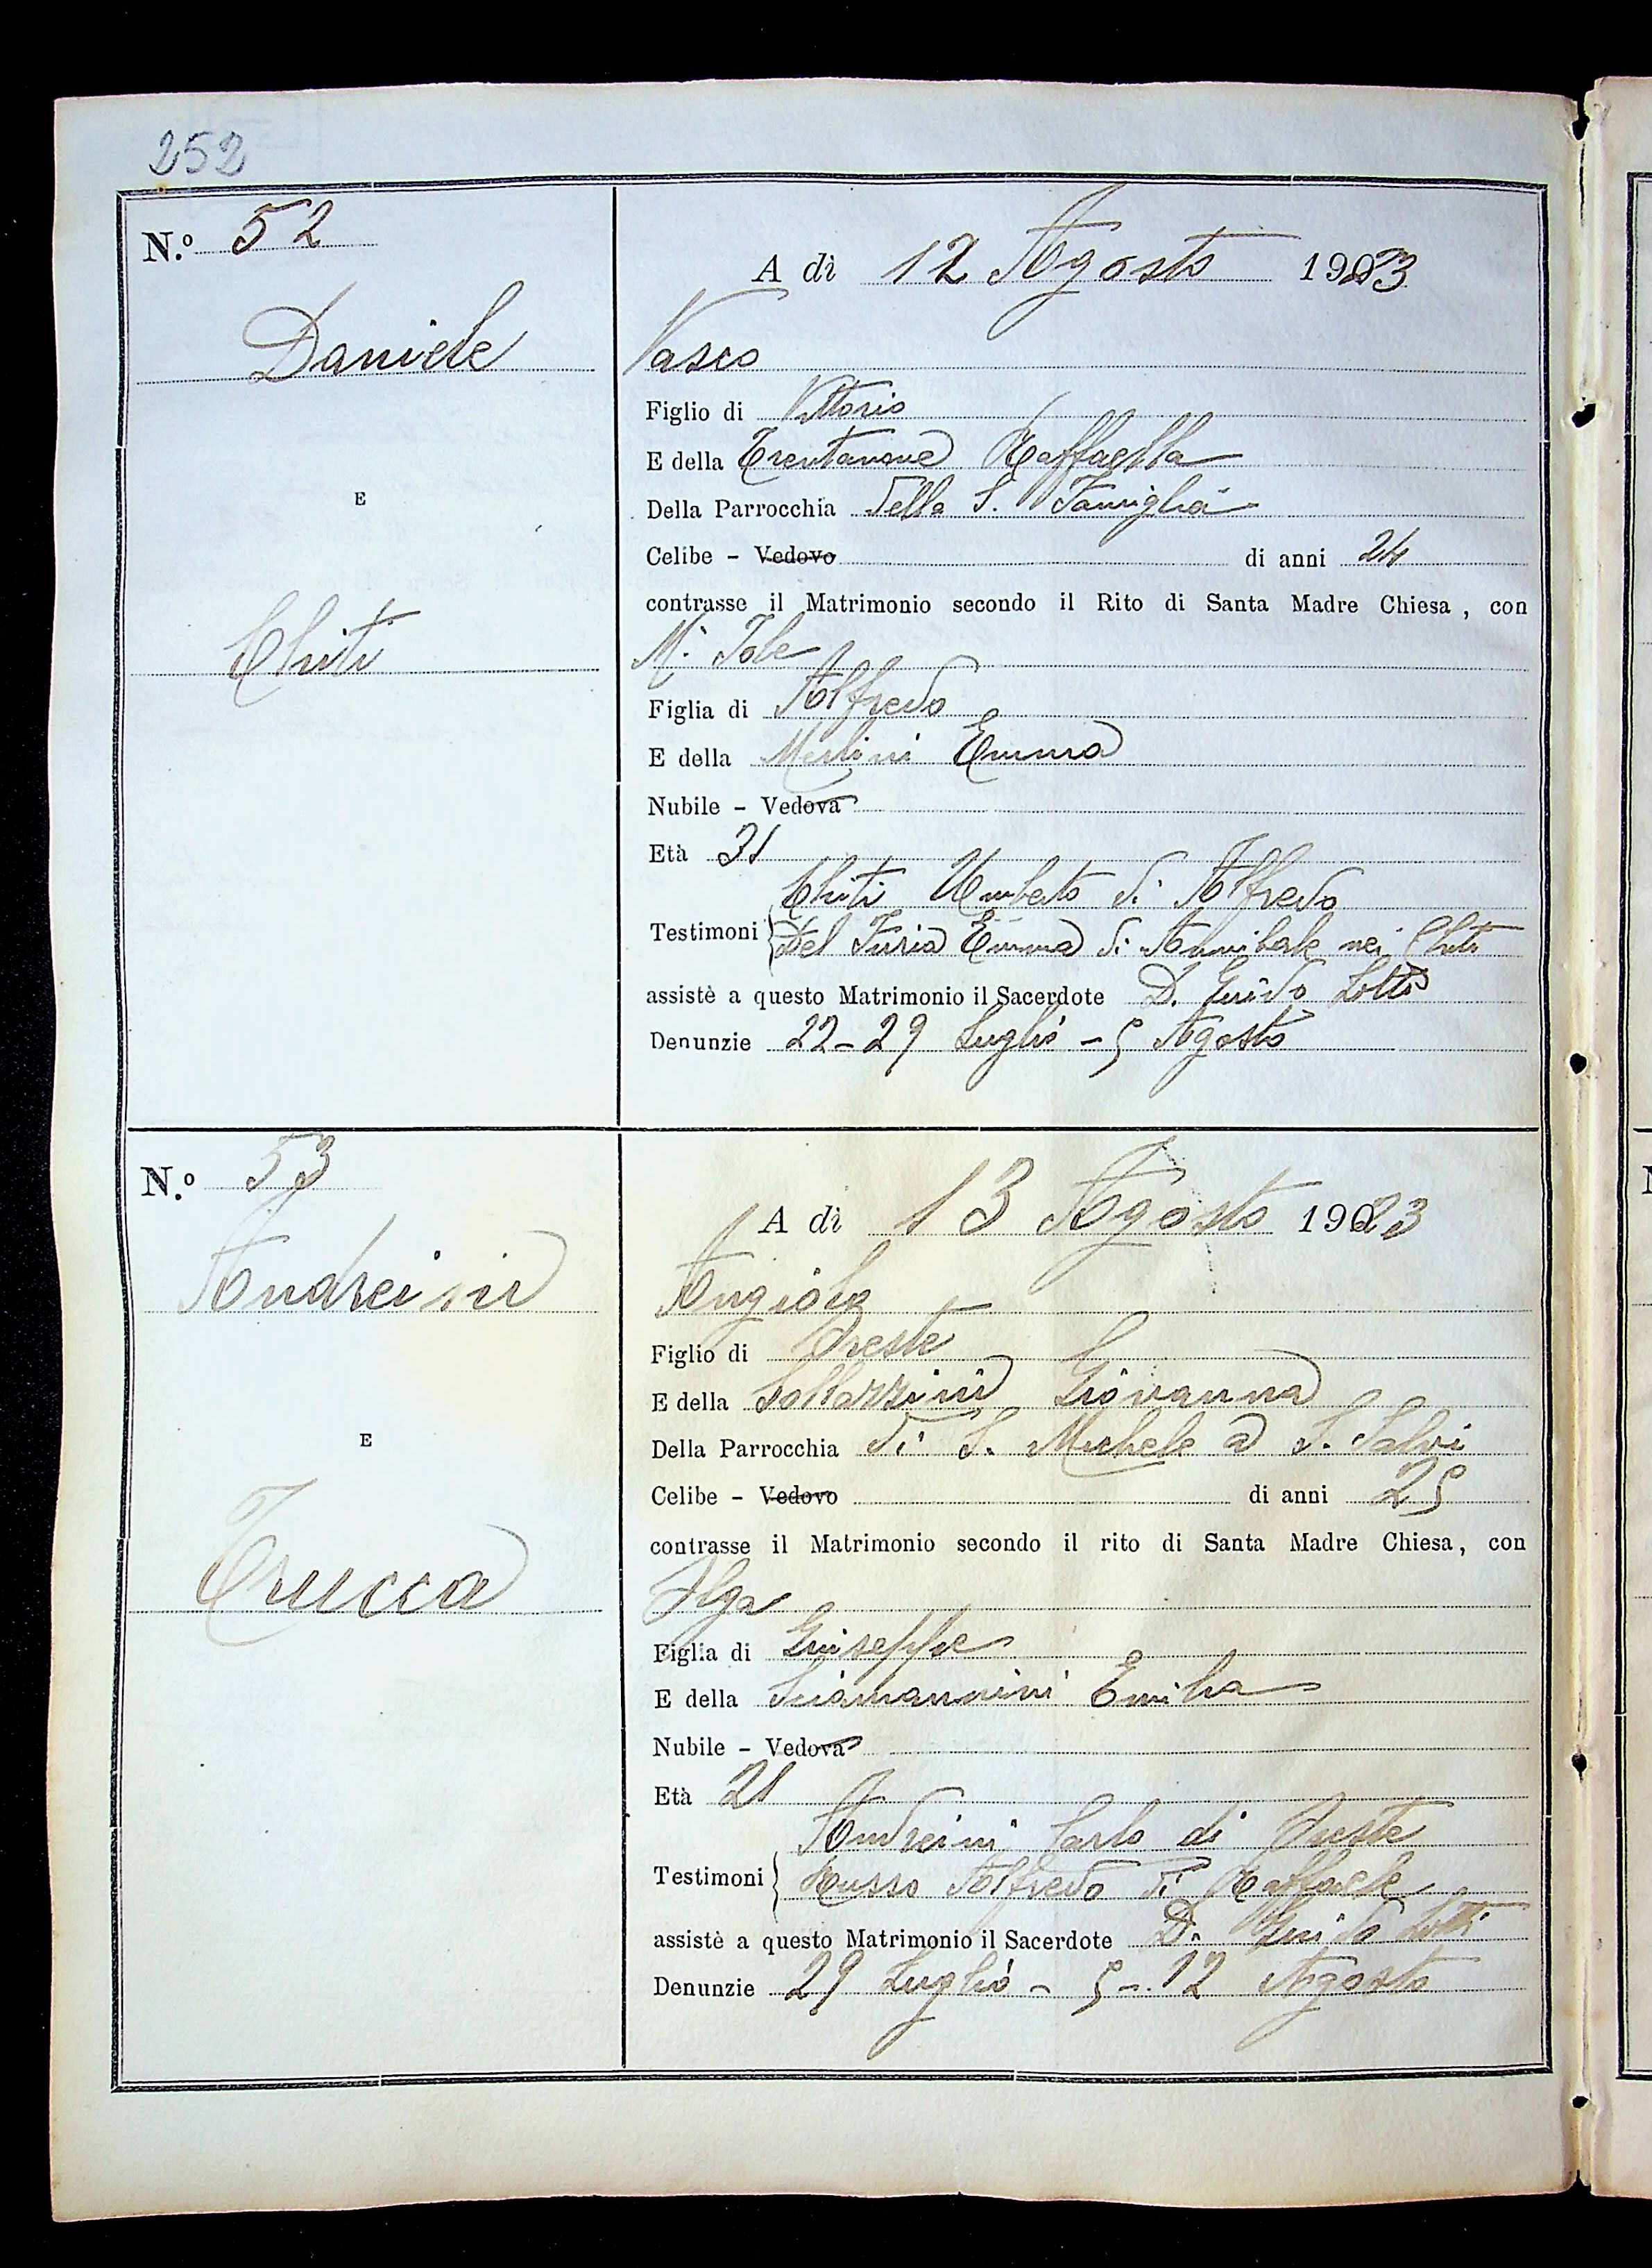 252
N.º 52
A dì 12 Agosto 1923
Daniele
Vasco
Figlio di Vittorio
E della Trentanove Raffaella
Della Parrocchia della S. Famiglia
E
Celibe - Vedovo di anni 24
contrasse il Matrimonio secondo il Rito di Santa Madre Chiesa, con
Chiti
M. Iole
Figlia di Alfredo
E della Merlini Emma
Nubile - Vedova
Età 21
Testimoni { Chiti Umberto di Alfredo
Del Furia Emma di Annibale nei Chiti
assistè a questo Matrimonio il Sacerdote D. Guido Lotti
Denunzie 22-29 Luglio - 5 Agosto
N.º 53
A dì 13 Agosto 1923
Andreini
Angiolo
Figlio di Oreste
E della Giovanna
Della Parrocchia di S. Michele a S. Salvi
E
Celibe - Vedovo di anni 25
contrasse il Matrimonio secondo il rito di Santa Madre Chiesa, con
Trucca
Olga
Figlia di Giuseppe
E della Sciamannini Emilia
Nubile - Vedova
Età 21
Testimoni { Andreini Carlo di Oreste
Russo Alfredo di Raffaele
assistè a questo Matrimonio il Sacerdote D. Guido Lotti
Denunzie 29 Luglio - 5 - 12 Agosto